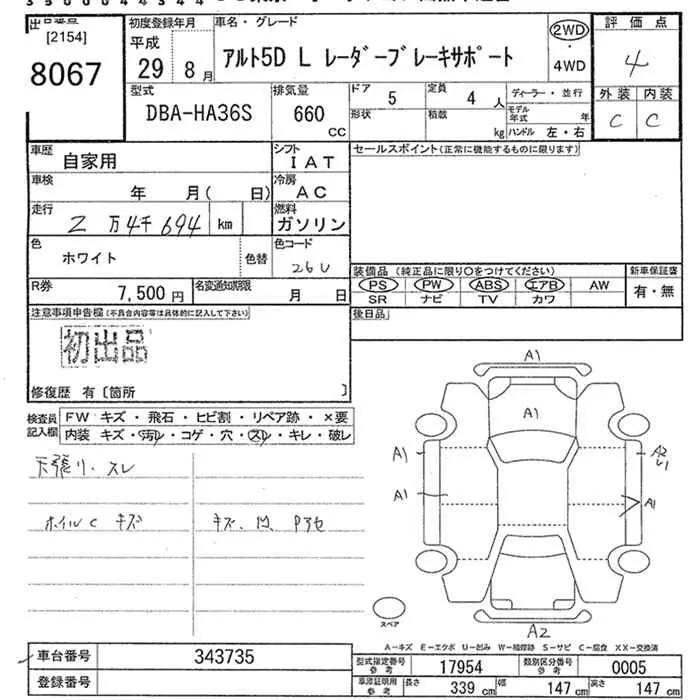 [2154]
8067
初度登録年月
平成
29 年 8 月
車名・グレード
アルト5D L レーダーブレーキサポート
2WD
・
4WD
評価点
4
外装 内装
C C
型式
DBA-HA36S
排気量
660
CC
ドア 5
定員 4 人
形状
積載 kg
ディーラー・並行
モデル年式 年
ハンドル 左・右
車歴
自家用
シフト
IAT
セールスポイント(正常に機能するものに限ります)
車検
年 月( 日)
冷房
AC
走行
2 万 4千 694 km
燃料
ガソリン
色
ホワイト
色替
色コード
26U
装備品 (純正品に限り○をつけてください)
新車保証書
PS PW ABS エアB AW
SR ナビ TV カワ
有・無
R券
7,500 円
名変通知期限
月 日
後日品
注意事項申告欄(不具合内容等は具体的に記入して下さい)
初出品
修復歴 有〔箇所 〕
検査員
記入欄
FW キズ・飛石・ヒビ割・リペア跡・×要
内装 キズ・汚レ・コゲ・穴・スレ・キレ・破レ
天張り・スレ
ホイルC キズ
キズ、凹、Pアセ
A1
A1
A1
A1
A2
U1
A1
A2
スペア
A-キズ E-エクボ U-凹み W-補修跡 S-サビ C-腐食 XX-交換済
車台番号
343735
登録番号
型式指定番号
参考
17954
類別区分番号
参考
0005
車庫証明用
参考
長さ 339 cm
幅 147 cm
高さ 147 cm